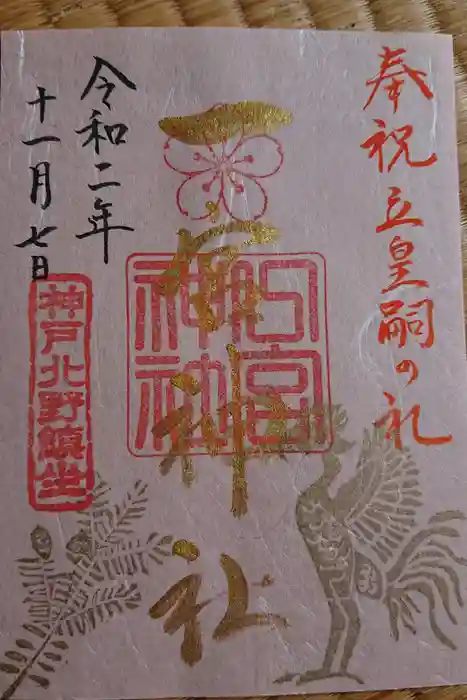 奉祝立皇嗣の礼
一宮神社
宮
神社
令和二年
十一月七日
神戸北野鎮座